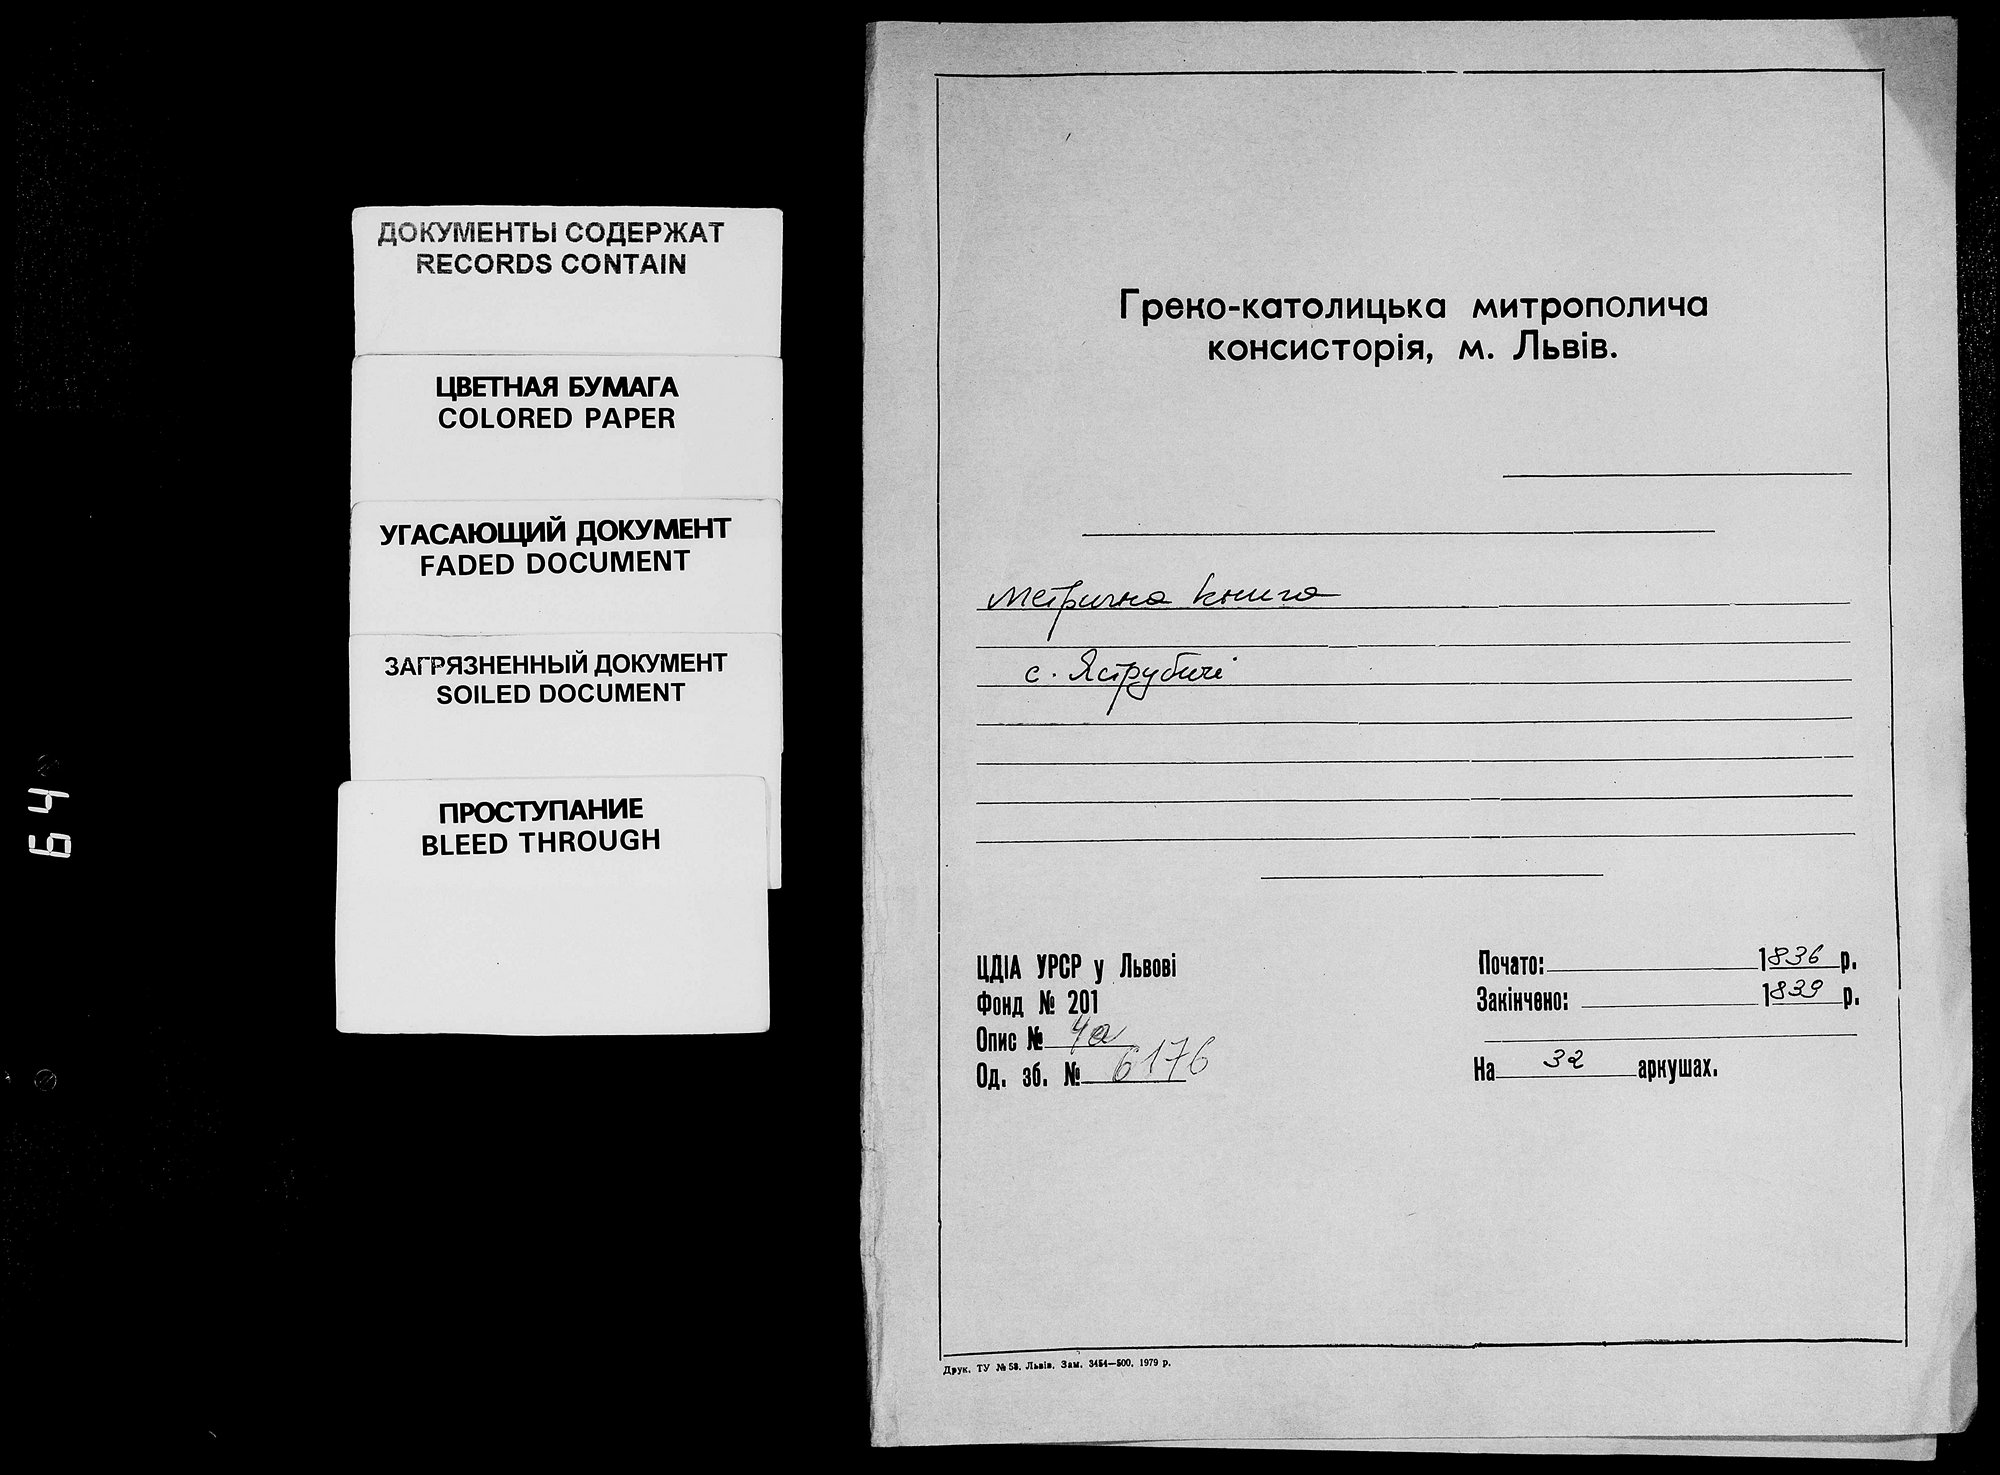 ДОКУМЕНТЫ СОДЕРЖАТ
RECORDS CONTAIN
ЦВЕТНАЯ БУМАГА
COLORED PAPER
УГАСАЮЩИЙ ДОКУМЕНТ
FADED DOCUMENT
ЗАГРЯЗНЕННЫЙ ДОКУМЕНТ
SOILED DOCUMENT
ПРОСТУПАНИЕ
BLEED THROUGH
64
Греко-католицька митрополича
консисторія, м. Львів.
метрична книга
с. Яструбичі
ЦДІА УРСР у Львові
Фонд № 201
Опис № 4а
Од. зб. № 6176
Почато: 1836 р.
Закінчено: 1839 р.
На 32 аркушах.
Друк. ТУ № 58. Львів. Зам. 3454—500. 1979 р.